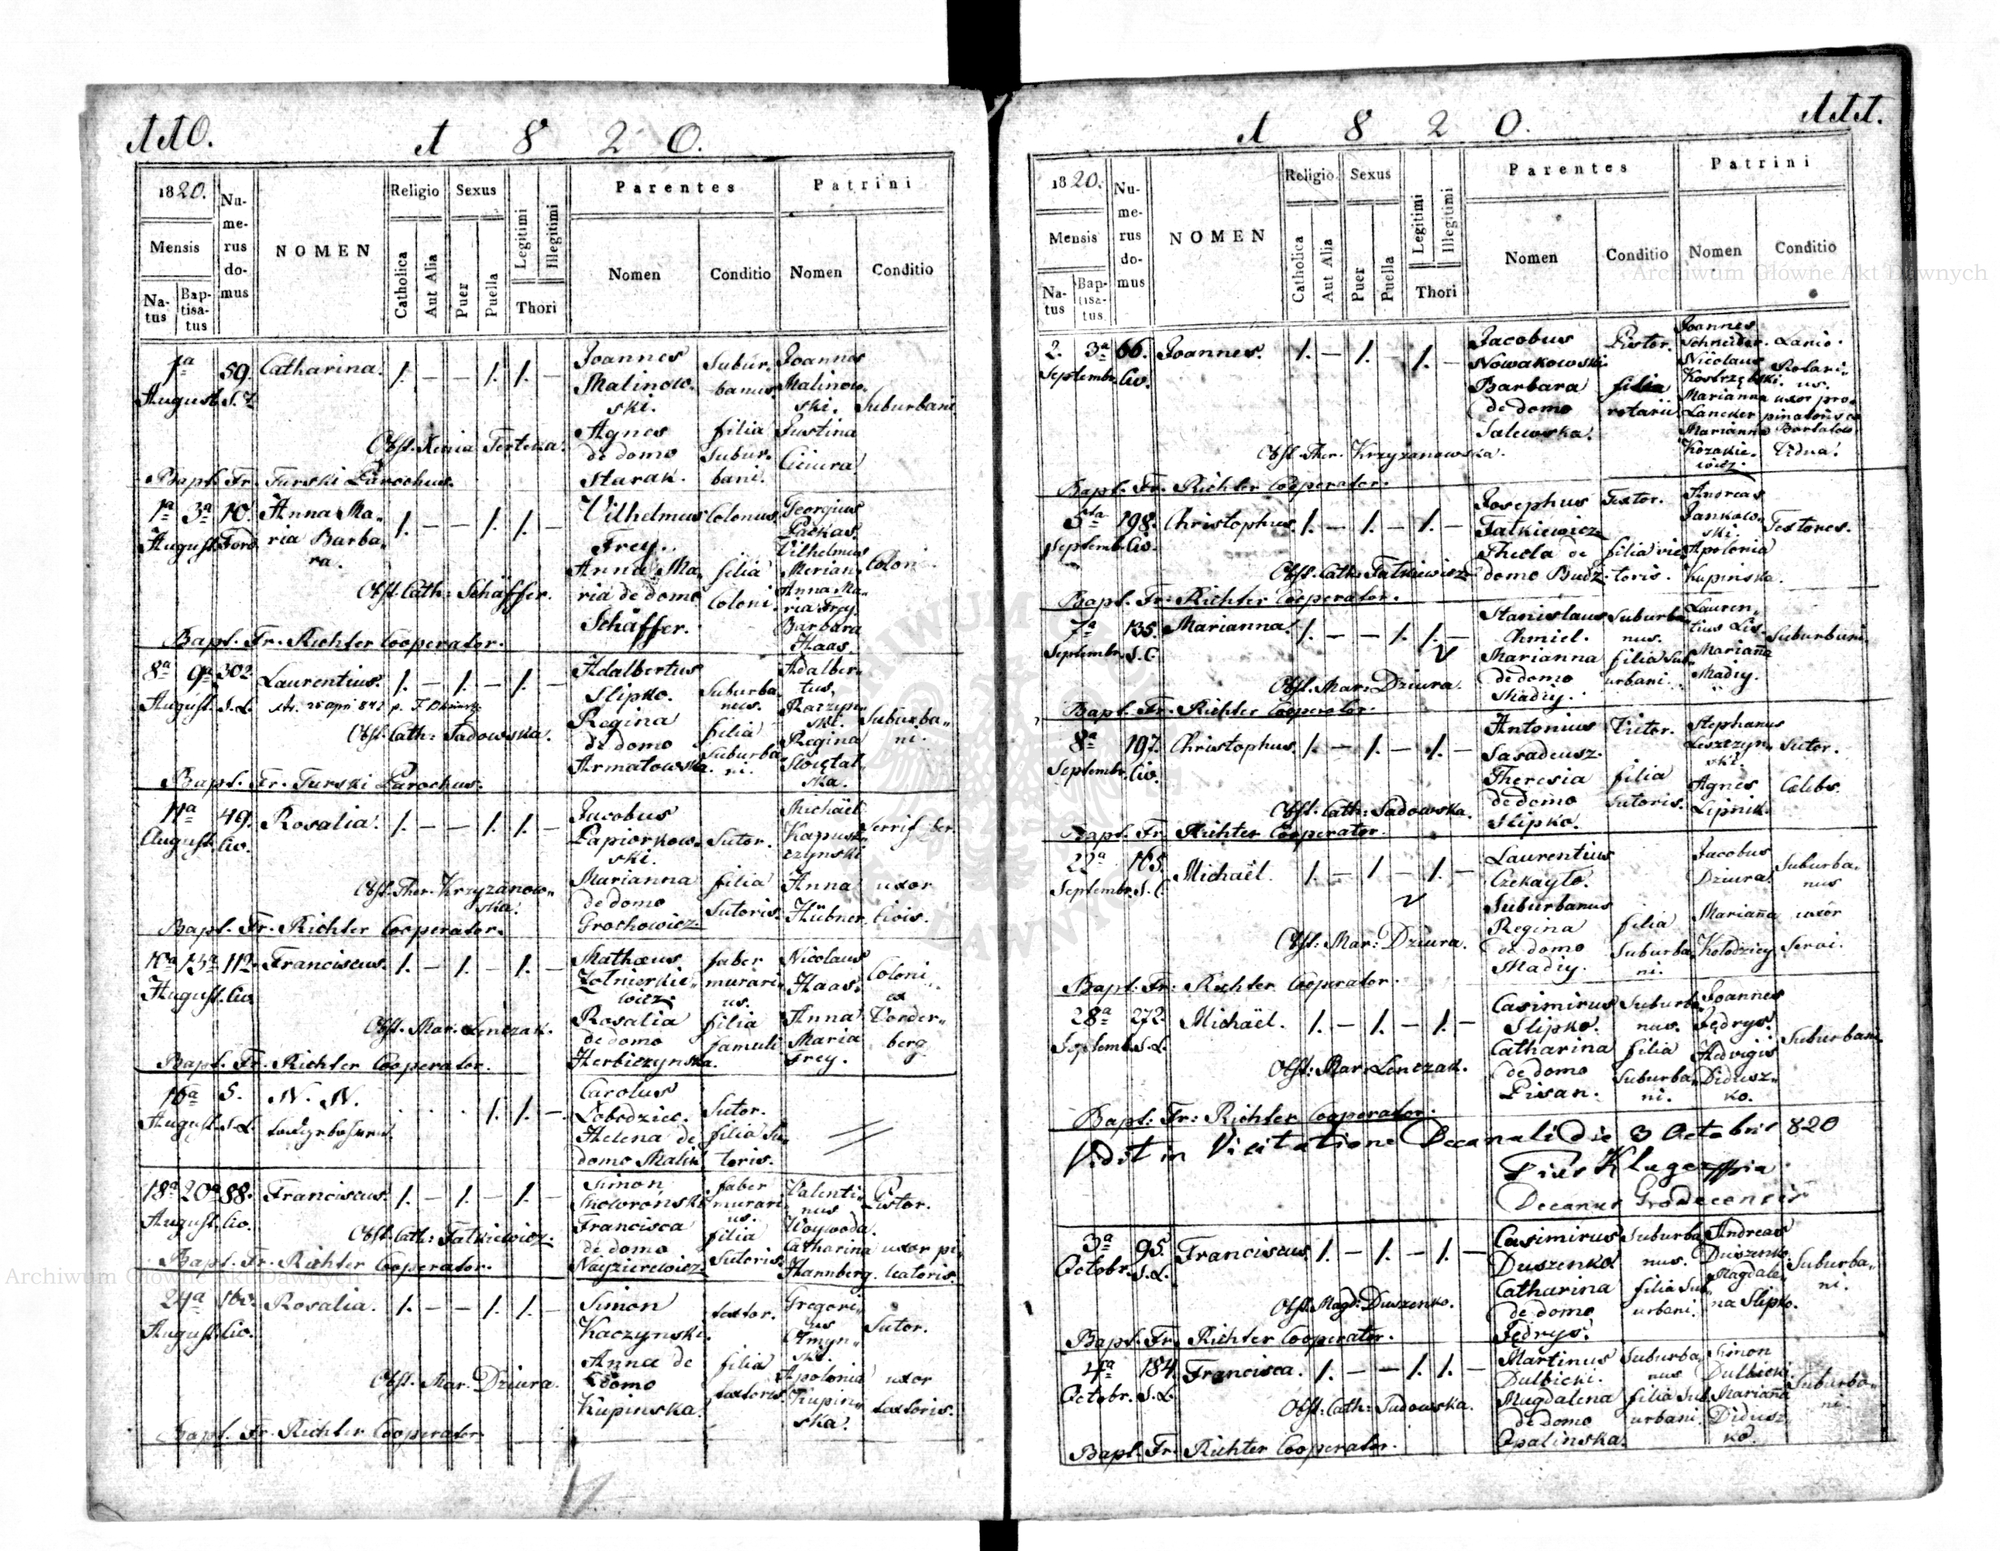 110.
1 8 2 0.
1820.
Mensis
Natus
Baptisatus
Numerus domus
NOMEN
Religio
Catholica
Aut Alia
Sexus
Puer
Puella
Legitimi
Illegitimi
Thori
Parentes
Nomen
Conditio
Patrini
Nomen
Conditio
1a August. 59. Catharina. 1. — — 1. 1. —
Joannes Malinowski. Suburbanus
Agnes de domo Starak. filia Suburbani.
Joannes Malinowski. Justina Suburbani
Bapt. Fr. Turski Parochus.
1a 3a August. 10. Ford. Anna Maria Barbara. 1. — — 1. 1. —
Vilhelmus Frey. Colonus
Anna Maria de domo Schäffer. filia Coloni.
Georgius Vilhelmus Merian. Anna Maria Frey. Barbara Haas. Coloni.
Obst. Cath: Schäffer.
Bapt. Fr. Richter Cooperator.
8a 9a August. 302. S.L. Laurentius. 1. — 1. — 1. —
Adalbertus Slipko. Suburbanus.
Regina de domo Armatowska. filia Suburbani.
Adalbertus Regina Suburbani.
Obst. Cath: Sadowska.
Bapt. Fr. Turski Parochus.
11a August. 49. Civ. Rosalia. 1. — — 1. 1. —
Jacobus Papiorkowski. Sutor.
Marianna de domo Grochowicz. filia Sutoris.
Michaël Kapuszczynski
Anna Hübner. uxor Civis.
Obst. Ther. Krzyzanowska.
Bapt. Fr. Richter Cooperator.
13a August. Civ. Franciscus. 1. — 1. — 1. —
Mathæus Zołnierkiewicz. faber murarius.
Rosalia de domo Herbiczynska. filia famuli
Nicolaus Haas. Anna Maria Frey. Coloni ex Vorderberg
Obst. Mar. Lenczak.
Bapt. Fr. Richter Cooperator.
16a August. 5. S.L. N. N. 1. 1. —
Carolus Łobodziec. Sutor.
Helena de domo Malik filia Sutoris.
18a 20a August. 88. Civ. Franciscus. 1. — 1. — 1. —
Simon faber murarius.
Francisca de domo filia Sutoris
Valentinus Woywoda. Pistor.
Catharina Hannberg. uxor
Obst. Cath: Fatkiewicz.
Bapt. Fr. Richter Cooperator.
24a August. Civ. Rosalia. 1. — — 1. 1. —
Simon Kaczynski. textor.
Anna de domo Kupinska. filia textoris.
Gregorius Sutor.
Apolonia Kupinska. uxor textoris.
Obst. Mar. Dziura.
Bapt. Fr. Richter Cooperator
111.
1 8 2 0.
1820.
Mensis
Natus
Baptisatus
Numerus domus
NOMEN
Religio
Catholica
Aut Alia
Sexus
Puer
Puella
Legitimi
Illegitimi
Thori
Parentes
Nomen
Conditio
Patrini
Nomen
Conditio
2. 3a Septembr. 66. Civ. Joannes. 1. — 1. — 1. —
Jacobus Nowakowski Pistor.
Barbara de domo Salewska. filia rotarii
Joannes Schneider. Lanio.
Nicolaus Kostrzębski. Rotarius.
Marianna Lancker uxor
Marianna Kozakiewicz. Vidua.
Obst. Ther. Krzyzanowska.
Bapt. Fr. Richter Cooperator.
5ta Septembr. 198. Civ. Christophus. 1. — 1. — 1. —
Josephus Fatkiewicz Textor.
Thecla de domo Budz. filia vietoris.
Andreas Jankowski. Apolonia Kupinska. Textores.
Obst. Cath. Fatkiewicz
Bapt. Fr. Richter Cooperator.
7a Septembr. 135. S.C. Marianna. 1. — — 1. 1. —
Stanislaus Chmiel. Suburbanus.
Marianna de domo Madiy. filia Suburbani.
Laurentius Lis. Marianna Madiy. Suburbani.
Obst. Mar: Dziura.
Bapt. Fr. Richter Cooperator.
8a Septembr. 197. Civ. Christophus. 1. — 1. — 1. —
Antonius Sasadeusz. Vietor.
Theresia de domo Slipko. filia Sutoris.
Stephanus Leszczynski Sutor.
Agnes Lipnik. Cælebs.
Obst. Cath: Sadowska.
Bapt. Fr. Richter Cooperator.
22a Septembr. 165. S.C Michaël. 1. — 1 — 1. —
Laurentius Czekayło. Suburbanus
Regina de domo Madiy. filia Suburbani.
Jacobus Dziura. Suburbanus
Marianna Kołodziey uxor Servi.
Obst. Mar: Dziura.
Bapt. Fr: Richter Cooperator.
28a Septemb. 272. S.L. Michaël. 1. — 1. — 1. —
Casimirus Slipko. Suburbanus.
Catharina de domo Pisan. filia Suburbani.
Joannes Fedrys. Hedvigis Diduszko. Suburbani.
Obst: Mar: Lenczak.
Bapt: Fr: Richter Cooperator.
Vidit in Visitatione Decanali die 3 Octobris 820
Pius Kluger
Decanus Grodecensis
3a Octobr. 95. S.L. Franciscus. 1. — 1. — 1. —
Casimirus Duszenko Suburbanus.
Catharina de domo Fedrys. filia Suburbani.
Andreas Duszenko. Magdalena Slipko. Suburbani.
Obst. Magd: Duszenko.
Bapt. Fr. Richter Cooperator.
4a Octobr. 184. S.L. Francisca. 1. — — 1. 1. —
Martinus Dulbicki. Suburbanus
Magdalena de domo Opalinska. filia Suburbani.
Simon Dulbicki. Marianna Diduszko. Suburbani.
Obst. Cath: Sadowska.
Bapt. Fr. Richter Cooperator.
Archiwum Główne Akt Dawnych
Archiwum Główne Akt Dawnych